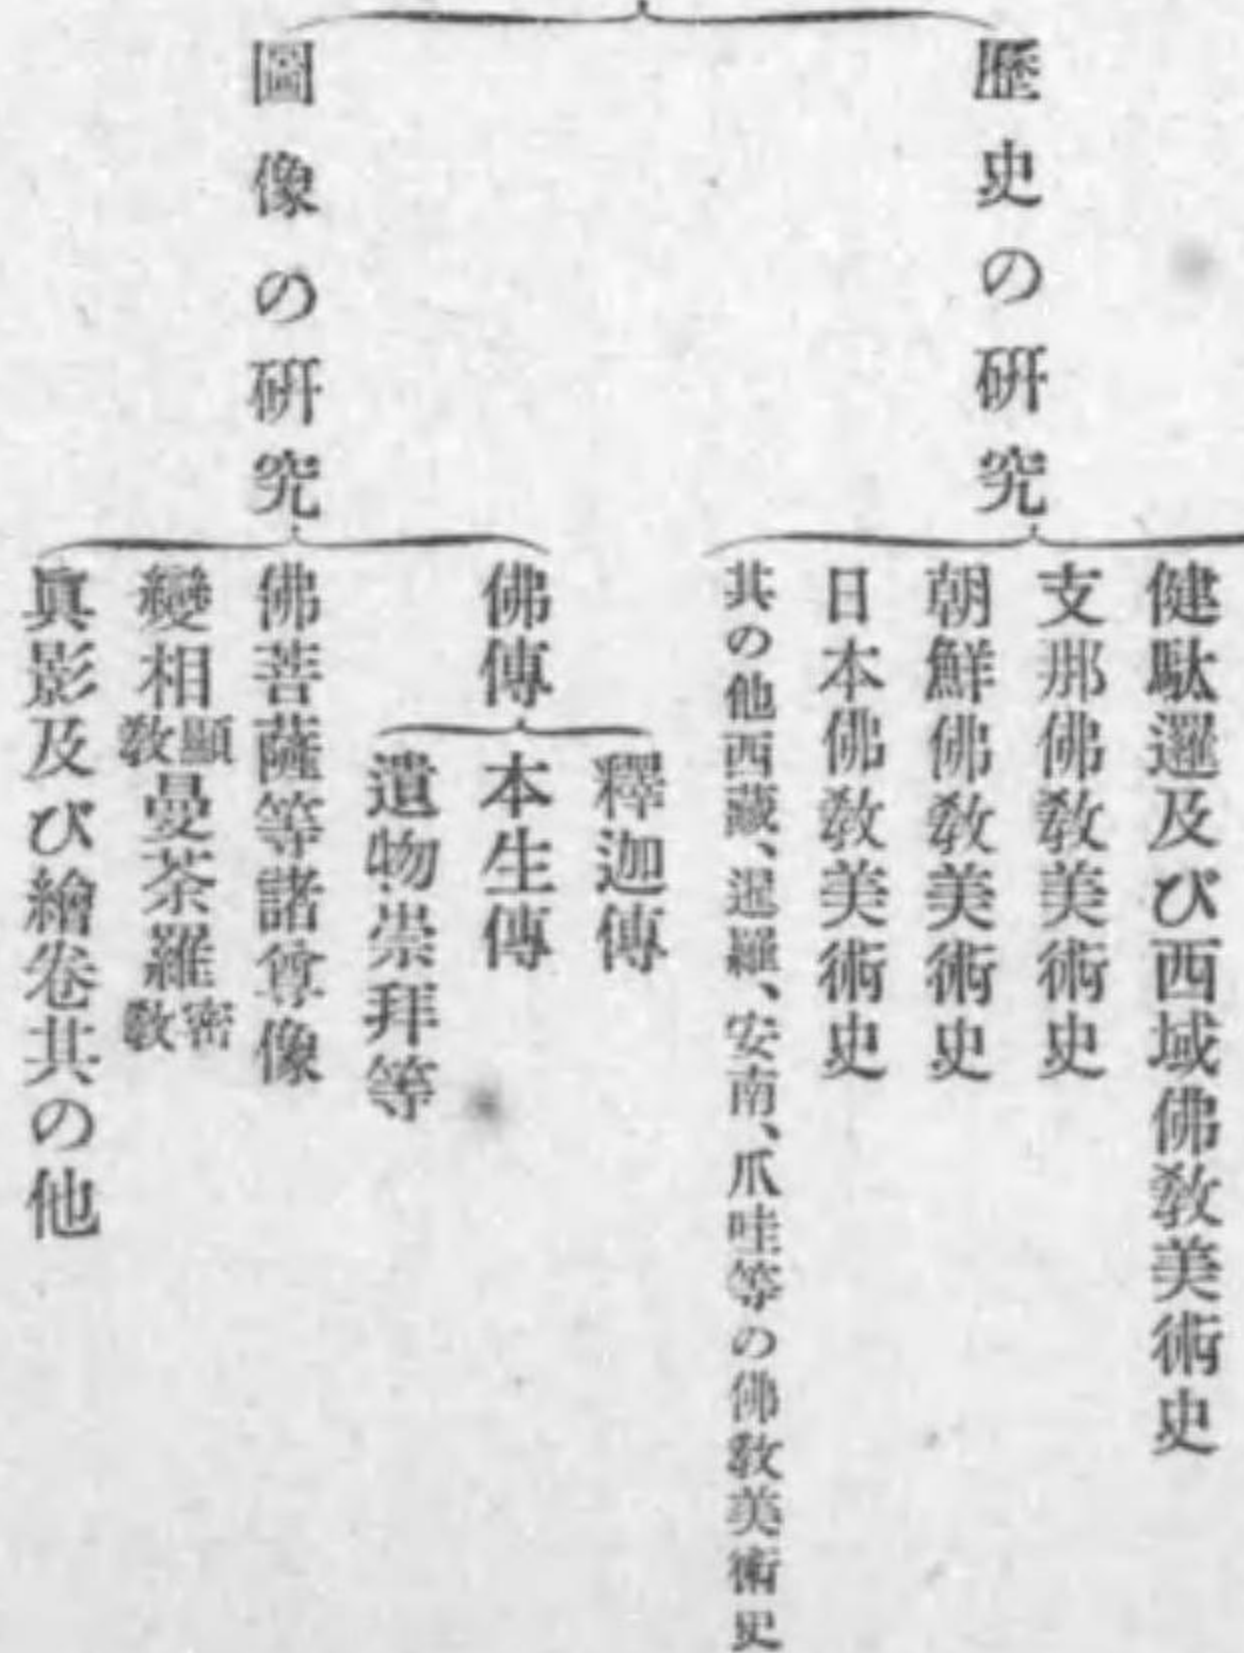 歷史の硏究
健馱邏及び西域佛敎美術史
支那佛敎美術史
朝鮮佛敎美術史
日本佛敎美術史
其の他西藏、暹羅、安南、爪哇等の佛敎美術史
圖像の硏究
佛傳
釋迦傳
本生傳
遺物崇拜等
佛菩薩等諸尊像
變相顯敎曼荼羅密敎
眞影及び繪卷其の他